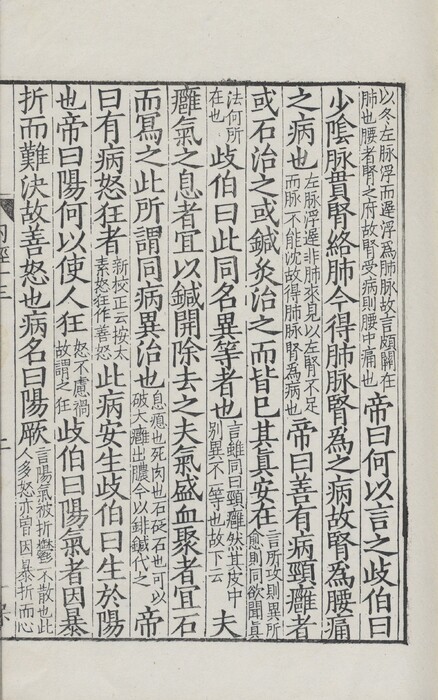 以冬左脉浮而遲浮為肺脉故言頗關在
肺也腰者腎之府故腎受病則腰中痛也
帝曰何以言之歧伯曰
少陰脉貫腎絡肺今得肺脉腎為之病故腎為腰痛
之病也
左脉浮遲非肺來見以左腎不足
而脉不能沈故得肺脉腎為病也
帝曰善有病頸癰者
或石治之或鍼灸治之而皆已其真安在
言所攻則異所
愈則同欲聞真
法何所
在也
歧伯曰此同名異等者也
言雖同曰頸癰然其皮中
別異不一等也故下云
夫
癰氣之息者宜以鍼開除去之夫氣盛血聚者宜石
而寫之此所謂同病異治也
息瘜也死肉也石砭石也可以
破大癰出膿今以䤵鍼代之
帝
曰有病怒狂者
新校正云按太
素怒狂作善怒
此病安生歧伯曰生於陽
也帝曰陽何以使人狂
怒不慮禍
故謂之狂
歧伯曰陽氣者因暴
折而難決故善怒也病名曰陽厥
言陽氣被折鬱不散也此
人多怒亦曾因暴折而心